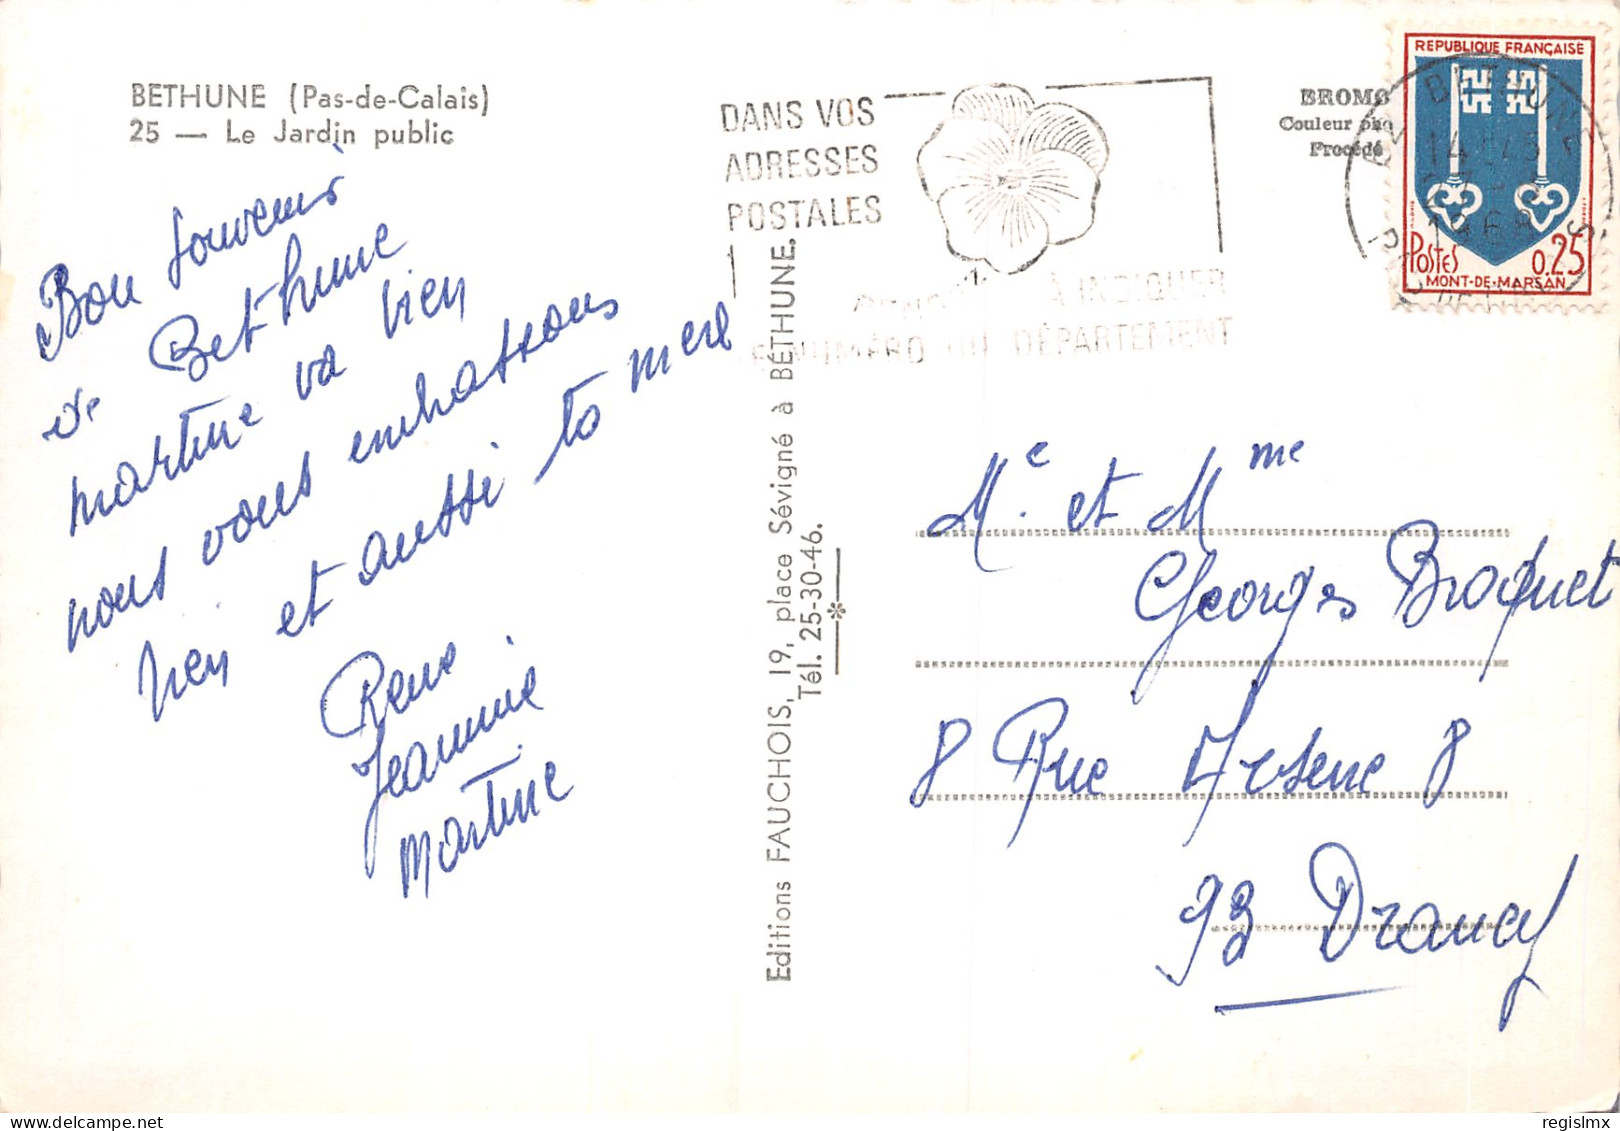 BETHUNE (Pas-de-Calais)
25 — Le Jardin public
Bon souvenir
de Bethune
martine va bien
nous vous embrassons
bien et aussi ta mere
Rene
Jeannine
martine
Editions FAUCHOIS, 19, place Sévigné à BÉTHUNE.
Tél. 25-30-46.
DANS VOS
ADRESSES
POSTALES
À INDIQUER
NUMÉRO DU DÉPARTEMENT
BROMO
Couleur
Procédé
REPUBLIQUE FRANÇAISE
POSTES 0,25
MONT-DE-MARSAN
BETHUNE
14 H 45
1968
PAS DE CALAIS
Mr. et Mme
Georges Broquet
8 Rue Arsene 8
93 Drancy
regislmx